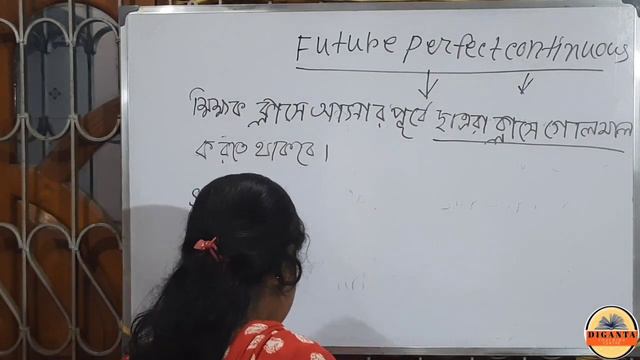 Future perfect continuous
শিক্ষক ক্লাসে আসার পূর্বে ছাত্ররা ক্লাসে গোলমাল
করতে থাকবে।
S
DIGANTA